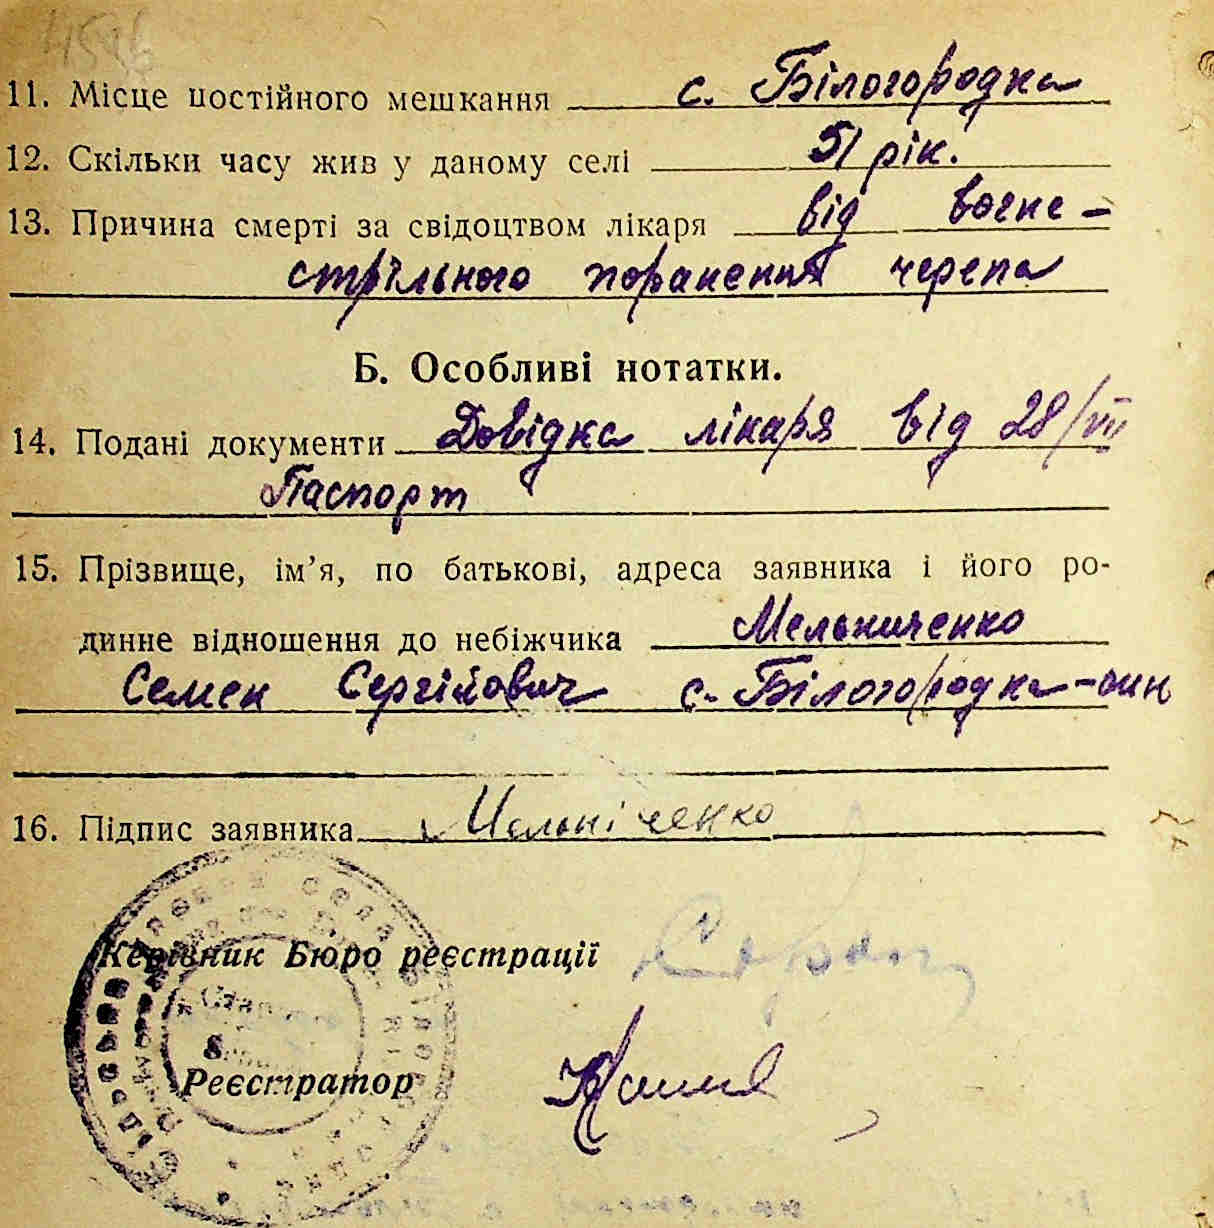 4596
11. Місце постійного мешкання с. Білогородка
12. Скільки часу жив у даному селі 51 рік.
13. Причина смерті за свідоцтвом лікаря від вогне-
стрільного поранения черепа
Б. Особливі нотатки.
14. Подані документи Довідка лікаря від 28/VII
Паспорт
15. Прізвище, ім’я, по батькові, адреса заявника і його ро-
динне відношення до небіжчика Мельниченко
Семен Сергійович с. Білогородка-син
16. Підпис заявника Мельніченко
Керівник Бюро реєстрації
Реєстратор